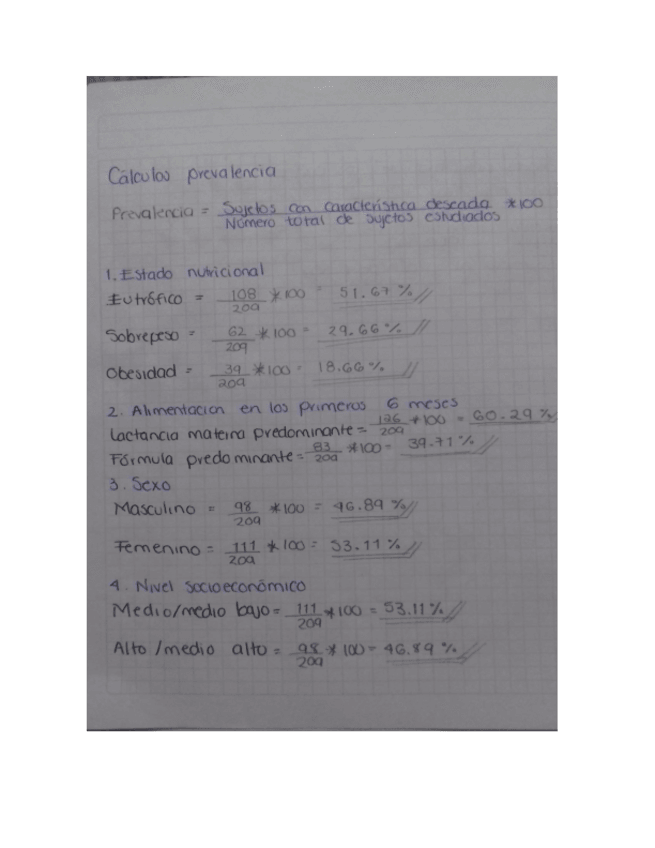 Cálculos prevalencia
Prevalencia = Sujetos con característica deseada *100
Número total de sujetos estudiados
1. Estado nutricional
Eutrófico = 108/209 *100 = 51.67 %
Sobrepeso = 62/209 *100 = 29.66 %
Obesidad = 39/209 *100 = 18.66 %
2. Alimentación en los primeros 6 meses
Lactancia materna predominante = 126/209 *100 = 60.29 %
Fórmula predominante = 83/209 *100 = 39.71 %
3. Sexo
Masculino = 98/209 *100 = 46.89 %
Femenino = 111/209 *100 = 53.11 %
4. Nivel socioeconómico
Medio/medio bajo = 111/209 *100 = 53.11 %
Alto /medio alto = 98/209 * 100 = 46.89 %